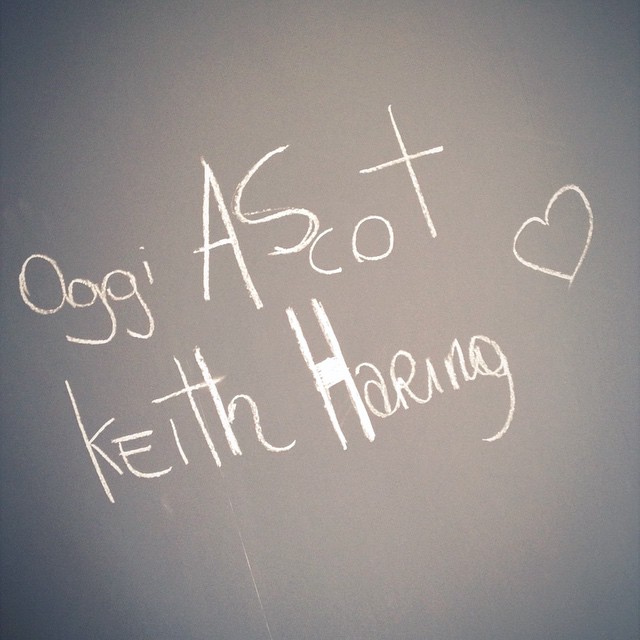 Oggi AScot
KEith HaRing